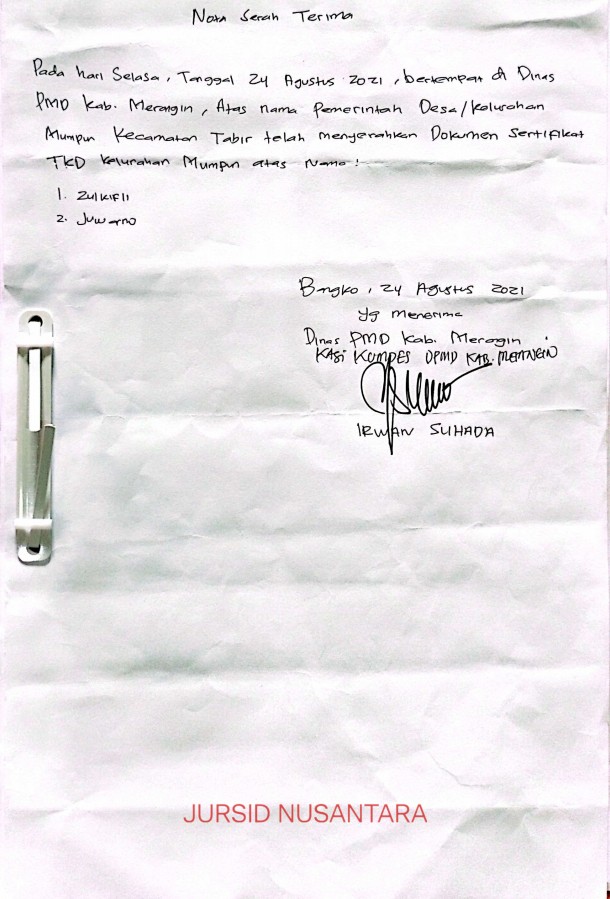 Nota Serah Terima
Pada hari Selasa, Tanggal 24 Agustus 2021, bertempat di Dinas
PMD Kab. Merangin, Atas nama Pemerintah Desa/Kelurahan
Mumpun Kecamatan Tabir telah menyerahkan Dokumen Sertifikat
TKD Kelurahan Mumpun atas Nama :
1. Zulkifli
2. Juwarno
Bangko, 24 Agustus 2021
yg menerima
Dinas PMD Kab. Merangin
KASI KUMPES DPMD KAB. MERANGIN
IRWAN SUHADA
JURSID NUSANTARA